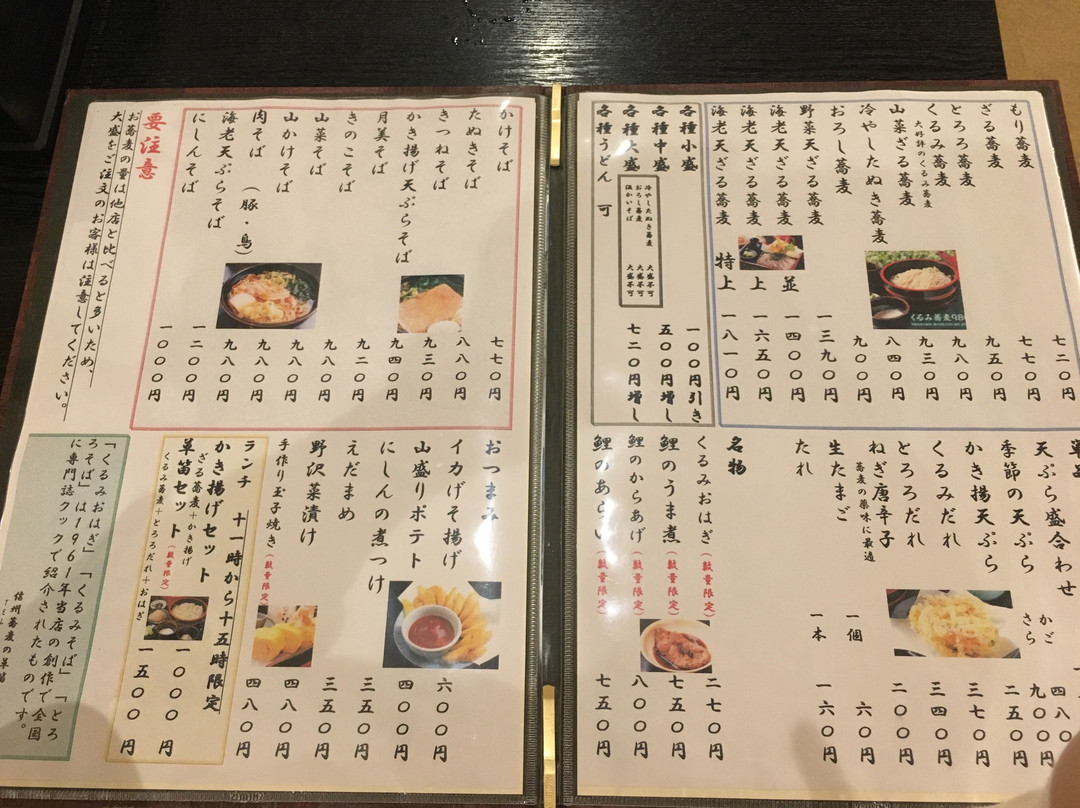 もり蕎麦 七二〇円
ざる蕎麦 七七〇円
とろろ蕎麦 九五〇円
くるみ蕎麦 九八〇円
大好評のくるみ蕎麦
山菜ざる蕎麦 九三〇円
冷やしたぬき蕎麦 八四〇円
おろし蕎麦 九〇〇円
野菜天ざる蕎麦 一三九〇円
海老天ざる蕎麦 並 一四〇〇円
海老天ざる蕎麦 上 一六五〇円
海老天ざる蕎麦 特上 一八一〇円
くるみ蕎麦980
各種小盛 一〇〇円引き
各種中盛 五〇〇円増し
各種大盛 七二〇円増し
各種うどん 可
冷やしたぬき蕎麦 大盛不可
おろし蕎麦 大盛不可
温かいそば 大盛不可
天ぷら盛合わせ
季節の天ぷら かど 九〇〇円
さら 二五〇円
かき揚天ぷら 三七〇円
くるみだれ 三四〇円
とろろだれ 二〇〇円
ねぎ唐辛子 一個 六〇円
蕎麦の薬味に最適
生たまご 一本 一六〇円
たれ
名物
くるみおはぎ(数量限定) 二七〇円
鯉のうま煮(数量限定) 七五〇円
鯉のからあげ(数量限定) 八〇〇円
鯉のあらい(数量限定) 七五〇円
かけそば 七七〇円
たぬきそば 八八〇円
きつねそば 九三〇円
かき揚げ天ぷらそば 九四〇円
月美そば 九二〇円
きのこそば 八八〇円
山菜そば 九八〇円
山かけそば 九八〇円
肉そば(豚・鳥) 九八〇円
海老天ぷらそば 一二〇〇円
にしんそば 一〇〇〇円
要注意
お蕎麦の量は他店と比べると多いため、
大盛をご注文のお客様は注意してください。
おつまみ
イカげそ揚げ 六〇〇円
山盛りポテト 四〇〇円
にしんの煮つけ 三五〇円
えだまめ 三五〇円
野沢菜漬け 四八〇円
手作り玉子焼き(数量限定) 四八〇円
ランチ 十一時から十五時限定
かき揚げセット 一〇〇〇円
ざる蕎麦+かき揚げ
草笛セット(数量限定) 一五〇〇円
くるみ蕎麦+とろろだれ+おはぎ
「くるみおはぎ」「くるみそば」「とろ
ろそば」は1961年当店の創作で全国
に専門誌クックで紹介されたものです。
信州蕎麦の草笛